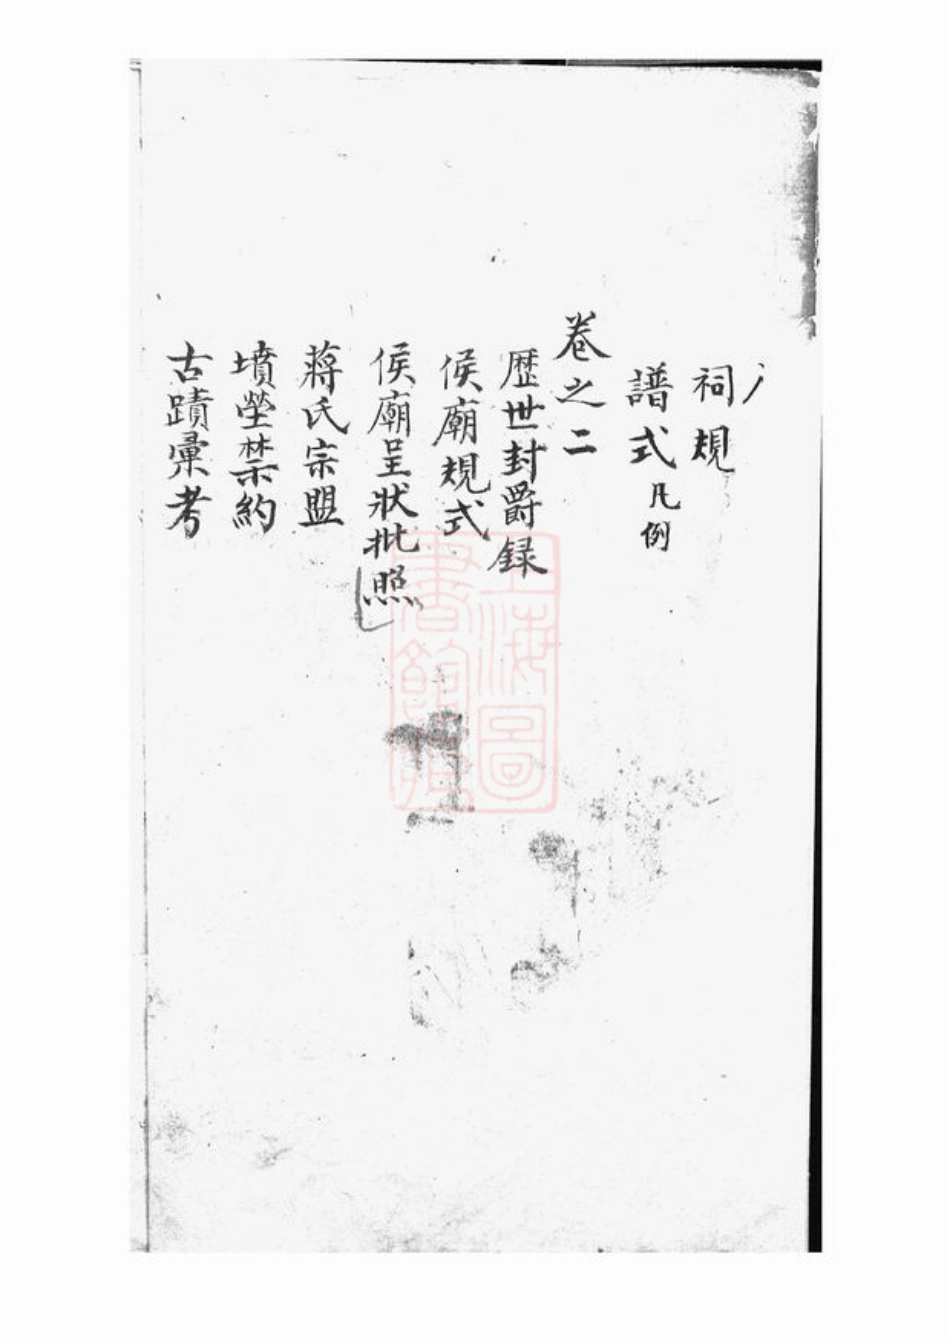 祠規
譜式 凡例
卷之二
歴世封爵録
侯廟規式
侯廟呈狀批照
蔣氏宗盟
墳塋禁約
古蹟彙考
上海圖
書館藏